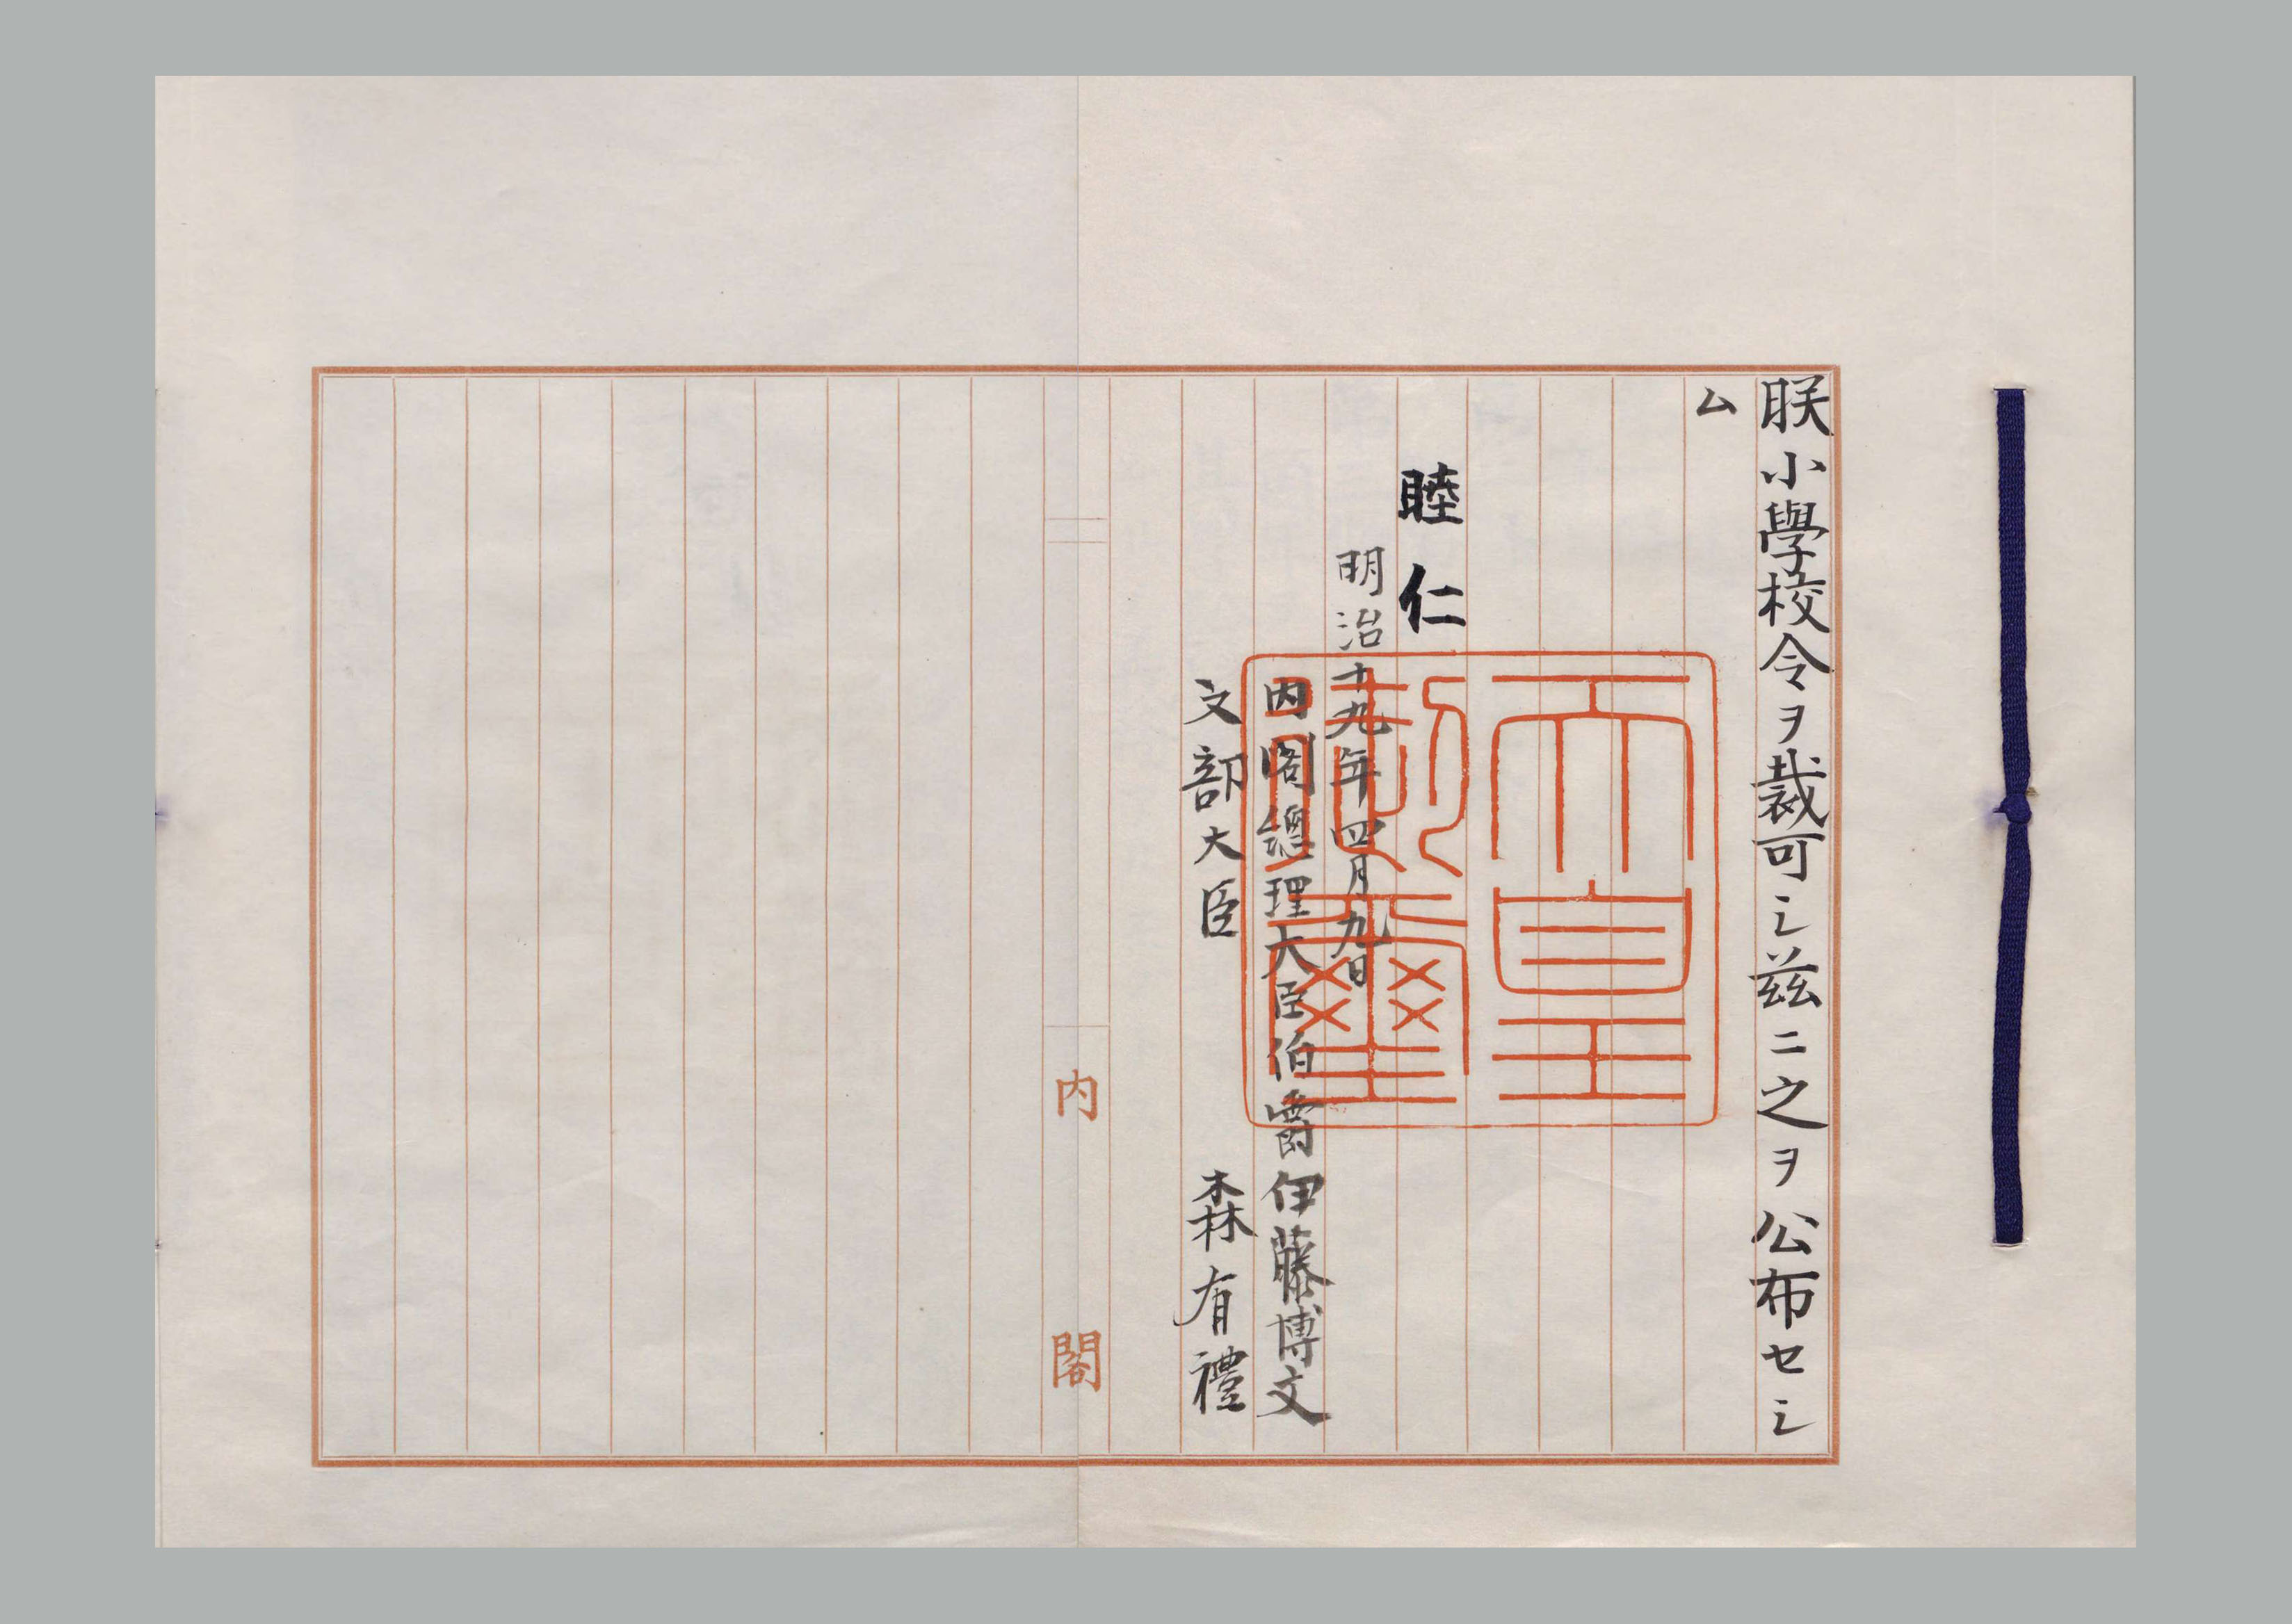 朕小學校令ヲ裁可シ茲ニ之ヲ公布セシ
ム
睦仁
天皇
御璽
明治十九年四月九日
内閣總理大臣伯爵伊藤博文
文部大臣 森有禮
内閣